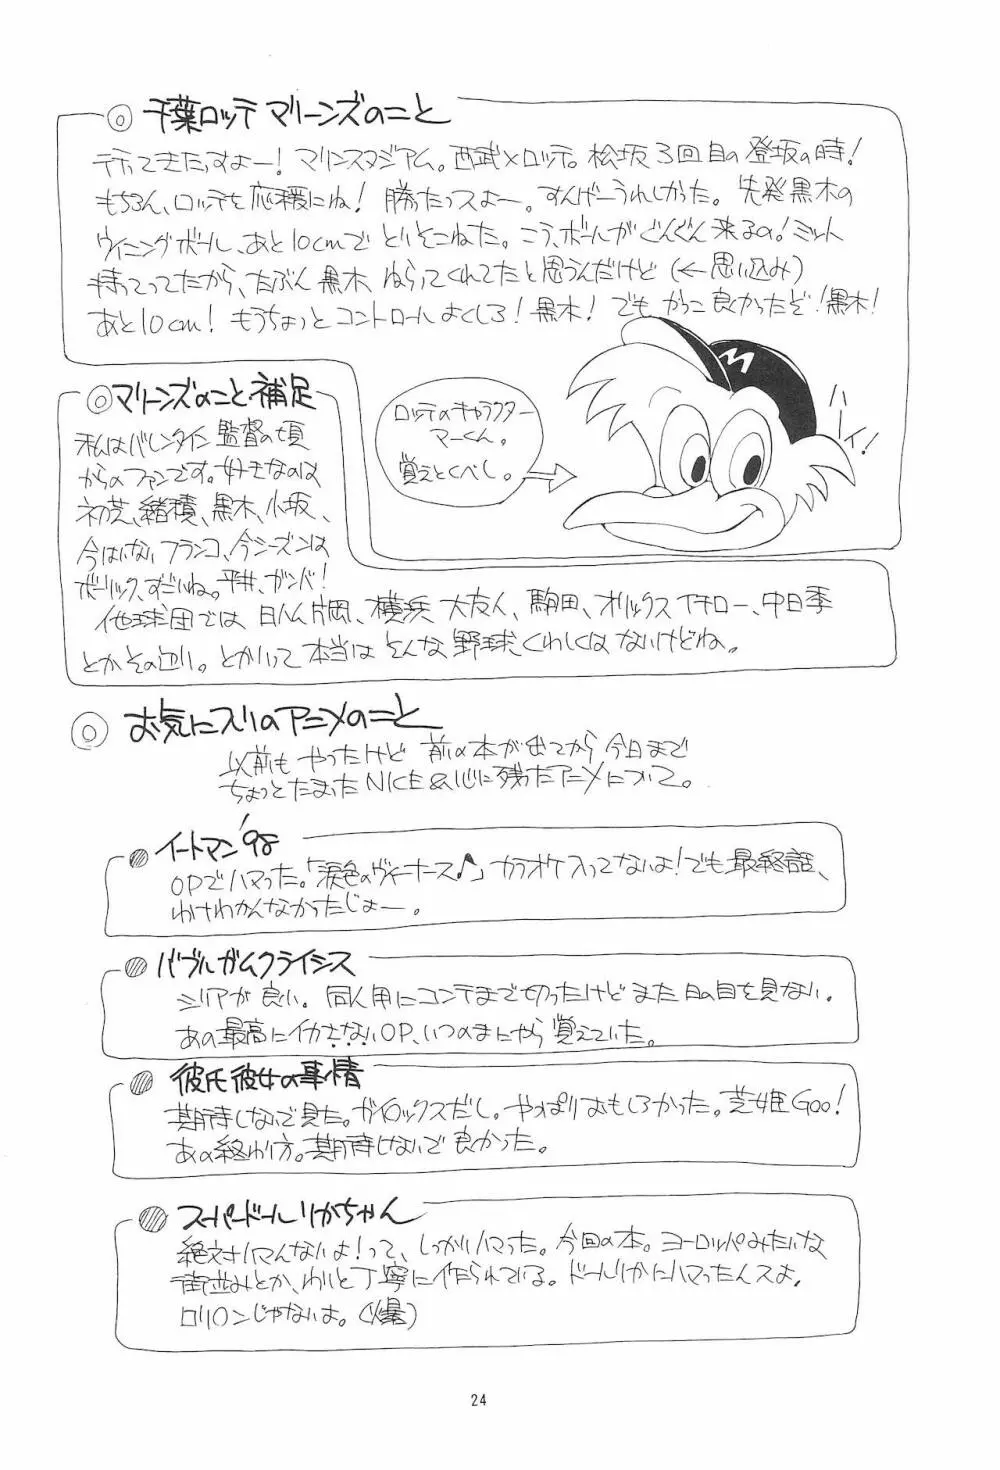 ◎ 千葉ロッテ マリーンズのこと
行ってきたっすよー! マリンスタジアム。西武×ロッテ。松坂3回目の登坂の時!
もちろん、ロッテを応援にね! 勝たっスよー。すんげーうれしかった。先発黒木の
ウイニングボール、あと10cmでとりそこねた。こう、ボールがぐんぐん来るの!ミット
持ってってたから、たぶん黒木 ねらってくれてたと思うんだけど(←思い込み)
あと10cm! もうちょっとコントロールよくしろ! 黒木! でもかっこ良かったぞ!黒木!
◎マリーンズのこと補足
私はバレンタイン監督の頃
からのファンです。好きなのは
初芝、緒積、黒木、小坂、
今はいないフランコ、今シーズンは
ボーリック、すごいね。平井、ガンバ!
他球団では 日ハム片岡、横浜 大友人、駒田、オリックスイチロー、中日李
とかその辺り。とかいって本当はそんな野球くわしくはないけどね。
ロッテのキャラクター
マーくん。
覚えとくべし。
M
ハーイ!
◎ お気に入りのアニメのこと
以前もやったけど 前の本が出てから今日まで
ちょっとたまったNICE&心に残ったアニメについて。
イートマン'98
OPでハマった。「涙色のヴィーナース♪」カラオケ入ってないよ!でも最終話、
わけわかんなかったじょー。
バブルガムクライシス
シリアが良い。同人用にコンテまで切ったけどまだ日の目を見ない。
あの最高にイカさないOP、いつのまにやら覚えていた。
彼氏彼女の事情
期待しないで見た。ガイロックスだし。やっぱりおもしろかった。芝姫Goo!
あの終わり方。期待しないで良かった。
スーパードールリカちゃん
絶対ハマんないよ!って、しっかりハマった。今回の本。ヨーロッパみたいな
街並みとか、わりと丁寧に作られている。ドールリカにハマったんスよ。
ロリ○ンじゃないよ。(爆)
24